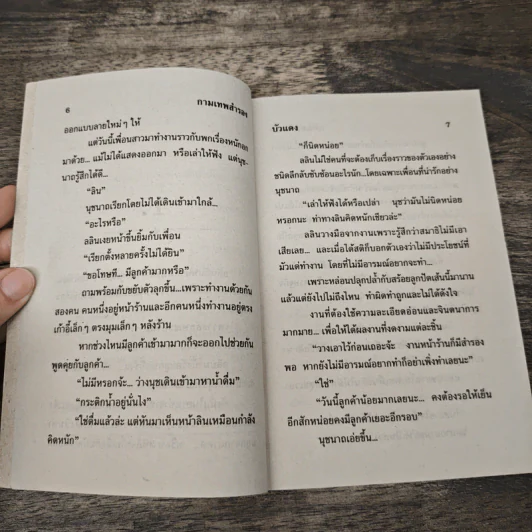 6
กามเทพสำรอง
ออกแบบลายใหม่ๆ ให้
แต่วันนี้เพื่อนสาวมาทำงานราวกับพกเรื่องหนักอก
มาด้วย... แม้ไม่ได้แสดงออกมา หรือเล่าให้ฟัง แต่นุช-
นาถรู้สึกได้ดี...
“ลิน”
นุชนาถเรียกโดยไม่ได้เดินเข้ามาใกล้...
“อะไรหรือ”
ลลินเงยหน้าขึ้นยิ้มกับเพื่อน
“เรียกตั้งหลายครั้งไม่ได้ยิน”
“ขอโทษที... มีลูกค้ามากหรือ”
ถามพร้อมกับขยับตัวลุกขึ้น...เพราะทำงานด้วยกัน
สองคน คนหนึ่งอยู่หน้าร้านและอีกคนหนึ่งทำงานอยู่ตรง
เก้าอี้เล็กๆ ตรงมุมเล็กๆ หลังร้าน
หากช่วงไหนมีลูกค้าเข้ามามากก็จะออกไปช่วยกัน
พูดคุยกับลูกค้า...
“ไม่มีหรอกจ้ะ... ว่างนุชเดินเข้ามาหาน้ำดื่ม”
“กระติกน้ำอยู่นั่นไง”
“ใช่ดื่มแล้วล่ะ แต่หันมาเห็นหน้าลินเหมือนกำลัง
คิดหนัก”
บัวแดง
7
“ก็นิดหน่อย”
ลลินไม่ใช่คนที่จะต้องเก็บเรื่องราวของตัวเองอย่าง
ชนิดลึกลับซับซ้อนอะไรนัก...โดยเฉพาะเพื่อนที่น่ารักอย่าง
นุชนาถ
“เล่าให้ฟังได้หรือเปล่า นุชว่ามันไม่นิดหน่อย
หรอกนะ ท่าทางลินคิดหนักเชียวล่ะ”
ลลินวางมือจากงานเพราะรู้สึกว่าสมาธิไม่มีเอา
เสียเลย... และเมื่อได้สติก็บอกตัวเองว่าไม่มีประโยชน์ที่
มัวแต่ทำงาน โดยที่ไม่มีอารมณ์อยากจะทำ...
เพราะหล่อนปลุกปล้ำกับสร้อยลูกปัดเส้นนี้มานาน
แล้วแต่ยังไปไม่ถึงไหน ทำผิดทำถูกและไม่ได้ดังใจ
งานที่ต้องใช้ความละเอียดอ่อนและจินตนาการ
มากมาย... เพื่อให้ได้ผลงานที่งดงามแต่ละชิ้น
“วางเอาไว้ก่อนเถอะจ้ะ งานหน้าร้านก็มีสำรอง
พอ หากยังไม่มีอารมณ์อยากทำก็อย่าเพิ่งทำเลยนะ”
“ใช่”
“วันนี้ลูกค้าน้อยมากเลยนะ... คงต้องรอให้เย็น
อีกสักหน่อยคงมีลูกค้าเยอะอีกรอบ”
นุชนาถเอ่ยขึ้น...